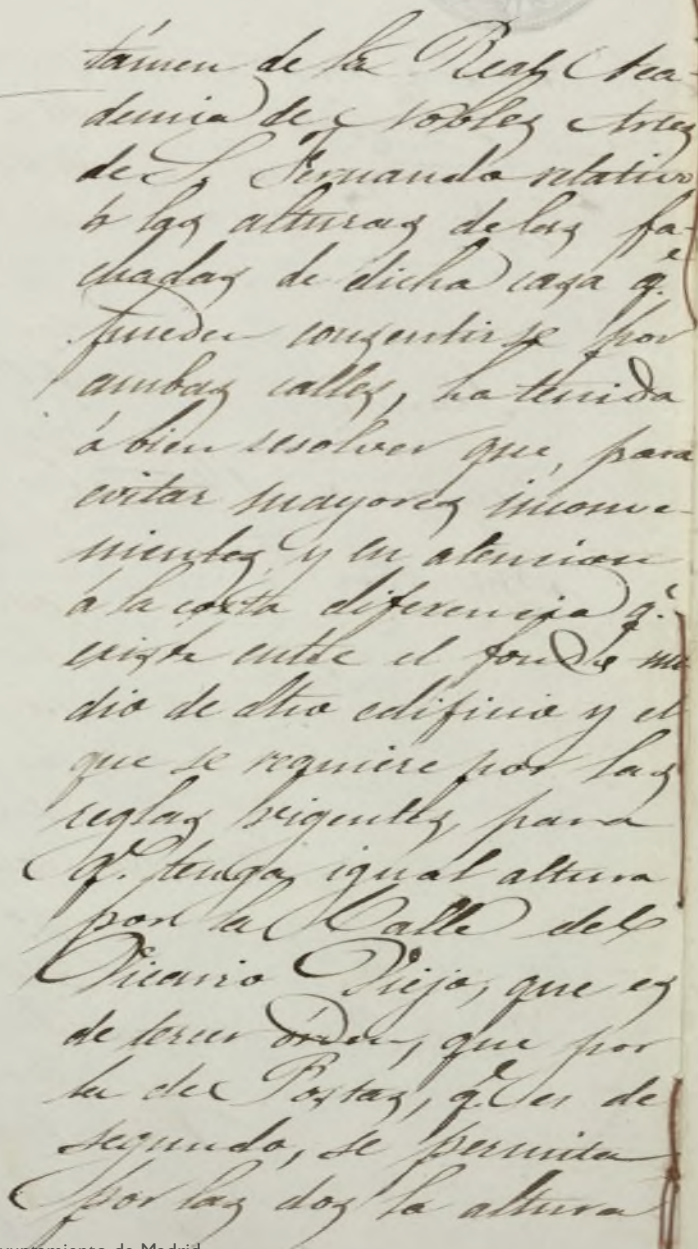 támen de la Real Aca-
demia de Nobles Artes
de S. Fernando relativo
á las alturas de las fa-
chadas de dicha casa q.e
pueden consentirse por
ambas calles, ha tenido
á bien resolver que, para
evitar mayores inconve-
nientes, y en atencion
á la corta diferencia q.e
existe entre el fondo me
dio de dho edificio y el
que se requiere por las
reglas vigentes, para
q.e tenga igual altura
por la Calle del
Vicario Viejo, que es
de tercer órden, que por
la de Postas, q.e es de
segundo, se permita
por las dos la altura
Ayuntamiento de Madrid